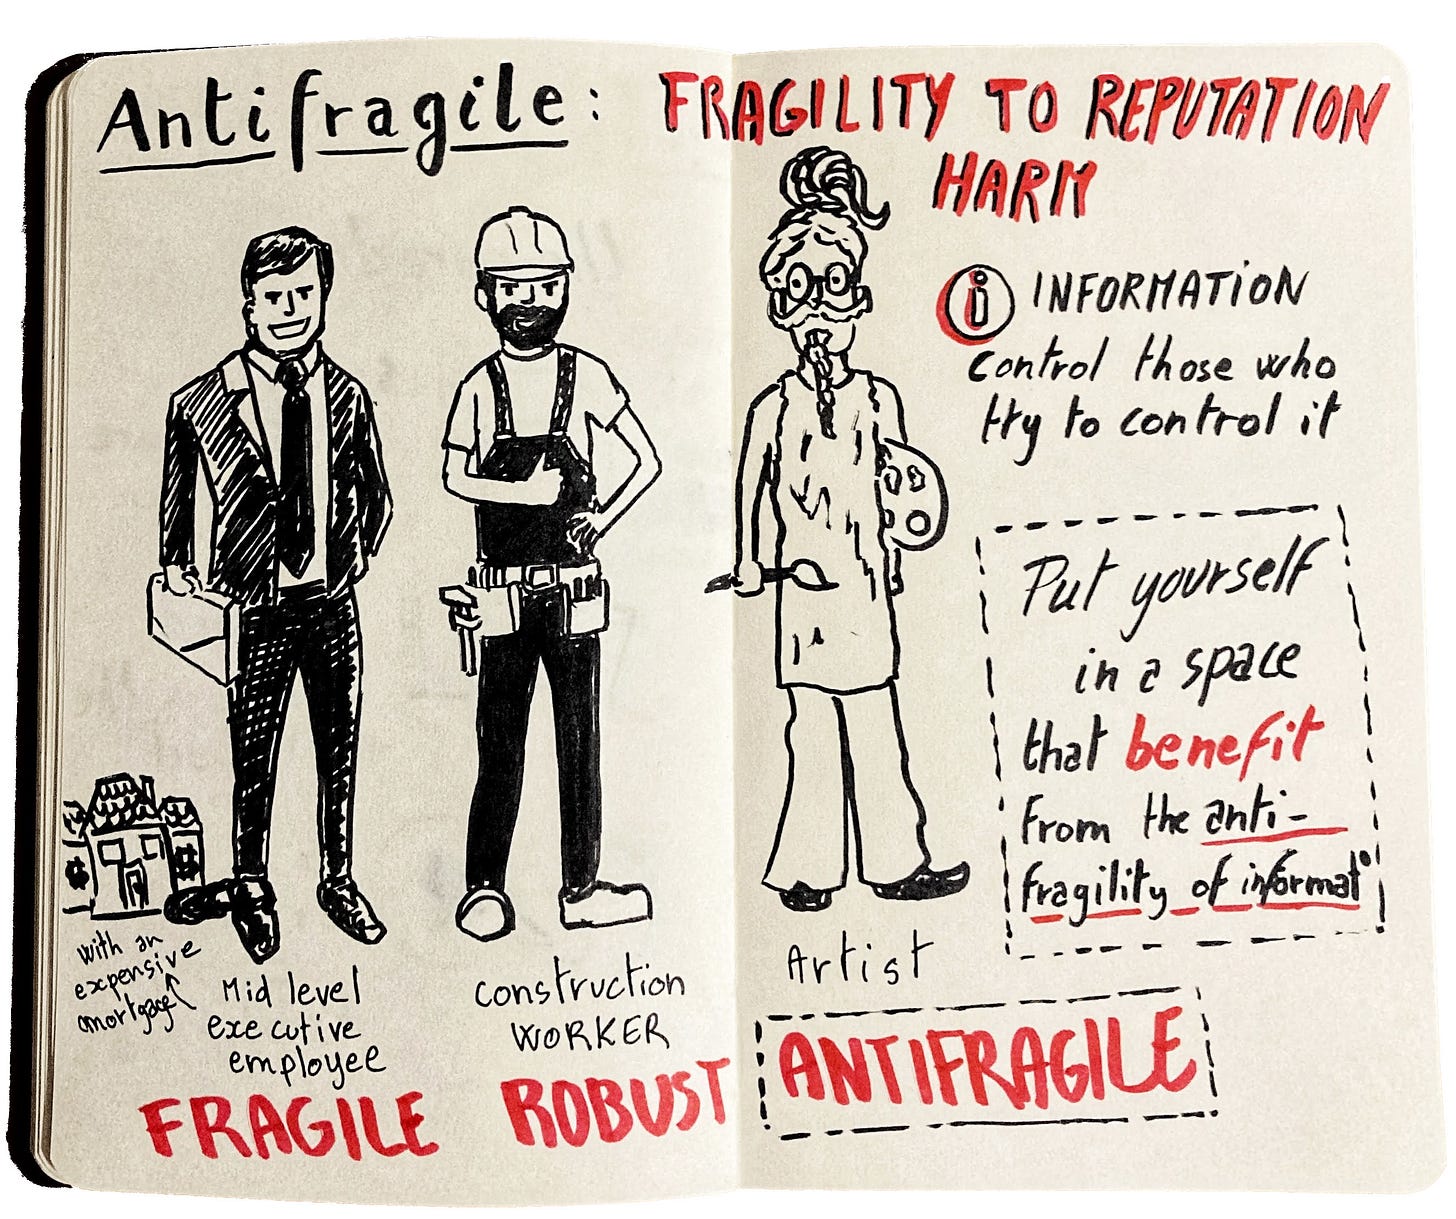 Antifragile: FRAGILITY TO REPUTATION
HARM
i INFORMATION
control those who
try to control it
Put yourself
in a space
that benefit
From the anti-
fragility of informat°
with an
expensive
mortgage
Mid level
executive
employee
construction
WORKER
Artist
FRAGILE
ROBUST
ANTIFRAGILE